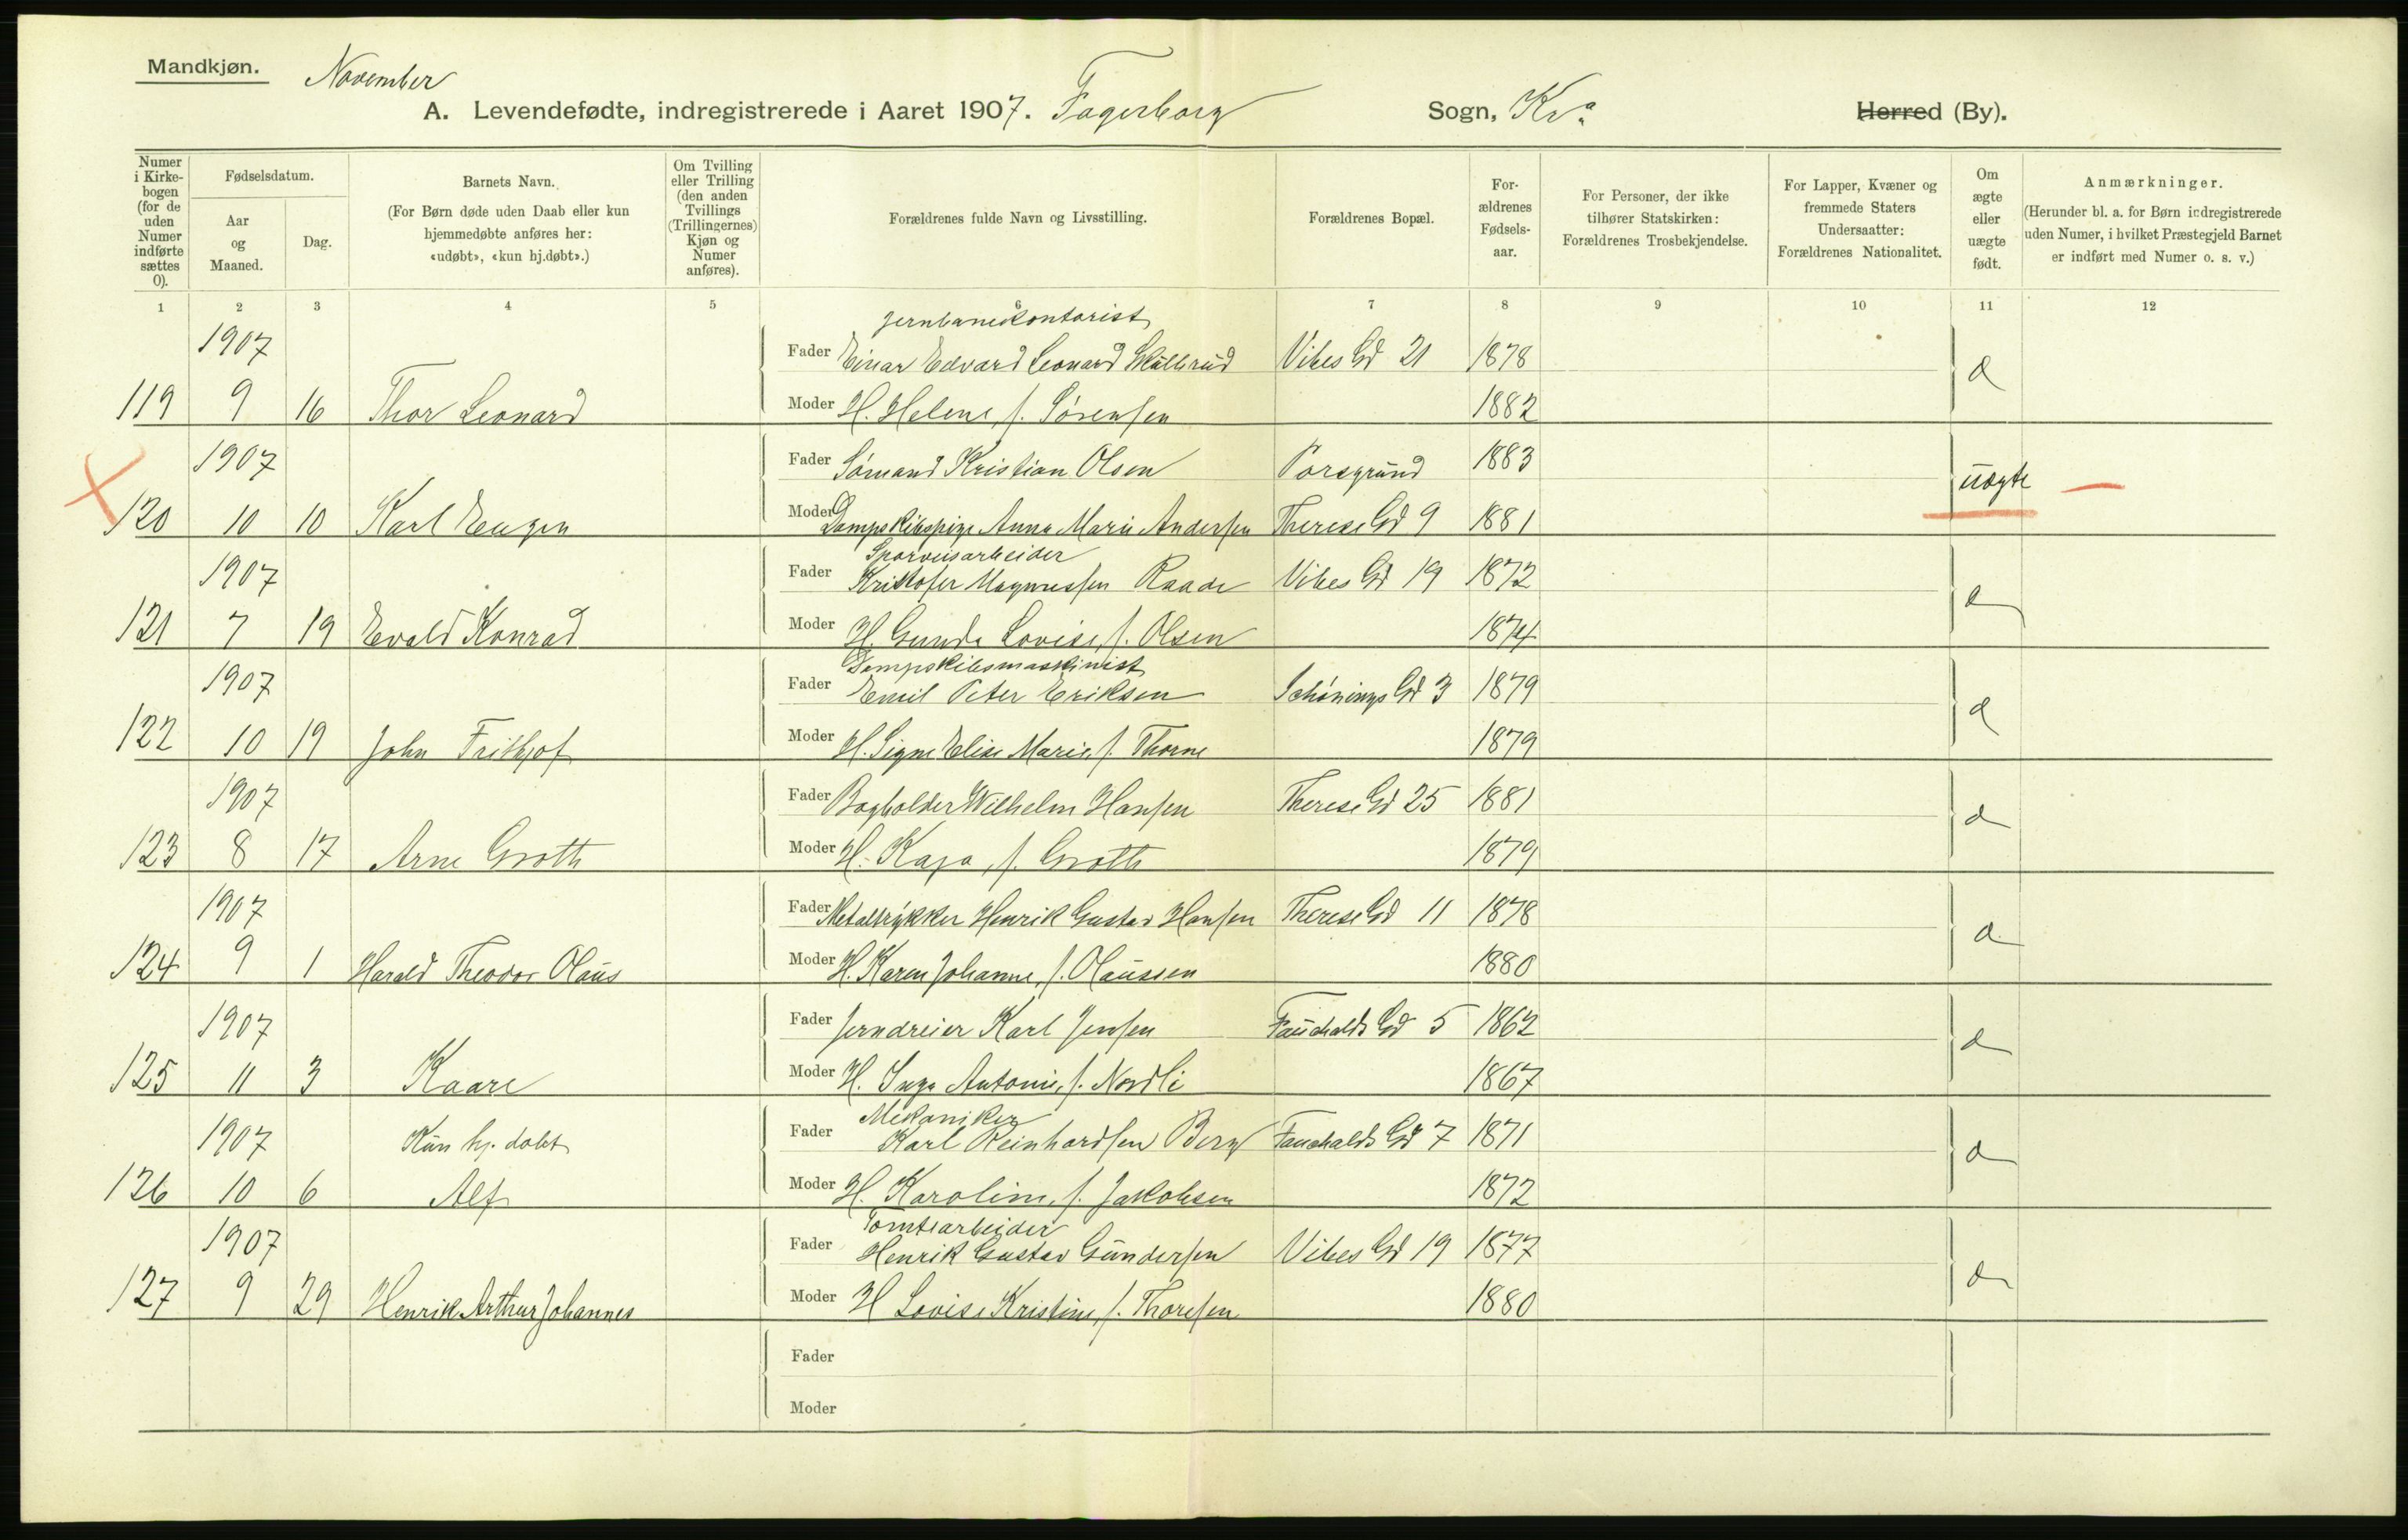 Mandkjøn.
November
A. Levendefødte, indregistrerede i Aaret 1907. Fagerborg Sogn, Kr.a Herred (By).
Numer i Kirkebogen (for de uden Numer indførte sættes 0).
Fødselsdatum.
Aar og Maaned.
Dag.
Barnets Navn.
(For Børn døde uden Daab eller kun hjemmedøbte anføres her: «udøbt», «kun hj.døbt».)
Om Tvilling eller Trilling (den anden Tvillings (Trillingernes) Kjøn og Numer anføres).
Forældrenes fulde Navn og Livsstilling.
Forældrenes Bopæl.
Forældrenes Fødselsaar.
For Personer, der ikke tilhører Statskirken: Forældrenes Trosbekjendelse.
For Lapper, Kvæner og fremmede Staters Undersaatter: Forældrenes Nationalitet.
Om ægte eller uægte født.
Anmærkninger.
(Herunder bl. a. for Børn indregistrerede uden Numer, i hvilket Præstegjeld Barnet er indført med Numer o. s. v.)
1 2 3 4 5 6 7 8 9 10 11 12
Jernbanekontorist
1907 Fader Einar Edvard Leonard Skullerud Vibes Gd 21 1878
119 9 16 Thor Leonard Moder H. Helene, f. Sørensen 1882
1907 Fader Sømand Kristian Olsen Porsgrund 1883 uægte
120 10 10 Karl Eugen Moder Dampskibspige Anna Marie Andersen Therese Gd 9 1881
Sporveisarbeider
1907 Fader Kristofer Magnussen Raade Vibes Gd 19 1872
121 7 19 Evald Konrad Moder H. Gunda Lovise, f. Olsen 1874
Dampskibsmaskinist
1907 Fader Emil Peter Eriksen Schønings Gd 3 1879
122 10 19 John Frithjof Moder H. Signe Elise Marie, f. Thorne 1879
1907 Fader Bogholder Wilhelm Hansen Therese Gd 25 1881
123 8 17 Arne Groth Moder H. Kaja, f. Groth 1879
1907 Fader Metaltrykker Henrik Gustav Hansen Therese Gd 11 1878
124 9 1 Harald Theodor Olaus Moder H. Karen Johanne, f. Olaussen 1880
1907 Fader Jerndreier Karl Jensen Fauchalds Gd 5 1862
125 11 3 Kaare Moder H. Inga Antonie, f. Nordli 1867
Mekaniker
1907 Kun hj. døbt Fader Karl Reinhardsen Berg Fauchalds Gd 7 1871
126 10 6 Alf Moder H. Karoline, f. Jakobsen 1872
Tomtearbeider
1907 Fader Henrik Gustav Gundersen Vibes Gd 19 1877
127 9 29 Henrik Arthur Johannes Moder H Lovise Kristine, f. Thoresen 1880
Fader
Moder